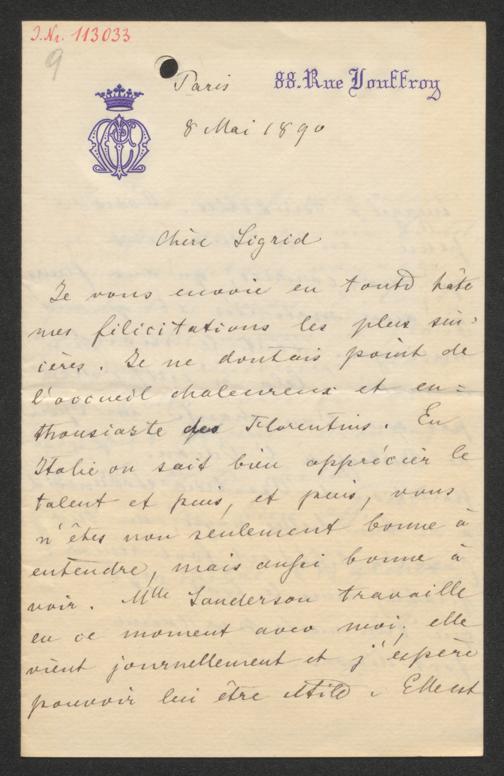 J.Nr. 113033
9
Paris 88. Rue Jouffroy
8 Mai 1890
Chère Sigrid
Je vous envoie en toute hâte
mes félicitations les plus sin-
cères. Je ne doutais point de
l'accueil chaleureux et en=
thousiaste des Florentins. En
Italie on sait bien apprécier le
talent et puis, et puis, vous
n'êtes non seulement bonne à
entendre, mais aussi bonne à
voir. Mlle Sanderson travaille
en ce moment avec moi; elle
vient journellement et j'espère
pouvoir lui être utile. Elle est